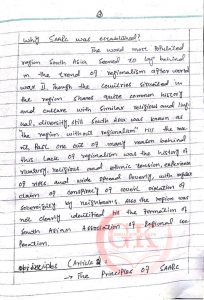 Why SAARC was established?
The word most Populated
region South Asia seemed to lag behind
in the trend of regionalism after world
war II. Though the countries situated in
the region shares quite common history
and culture with similar religious and lingu
al diversity still South Asia was known as
"the region without regionalism" till the
Past. one out of many reason behind
this lack of regionalism was the history of
rivalary, religious and ethnic tension, experience
of and wide spread poverty, with
claim of conspiracy of violation of
Sovereignity by neighbours. Also the region was
not clearly identified till the formation of
South Asian Association of Regional Co
peration.
GK
Principles (Article
→ The Principles of SAARC